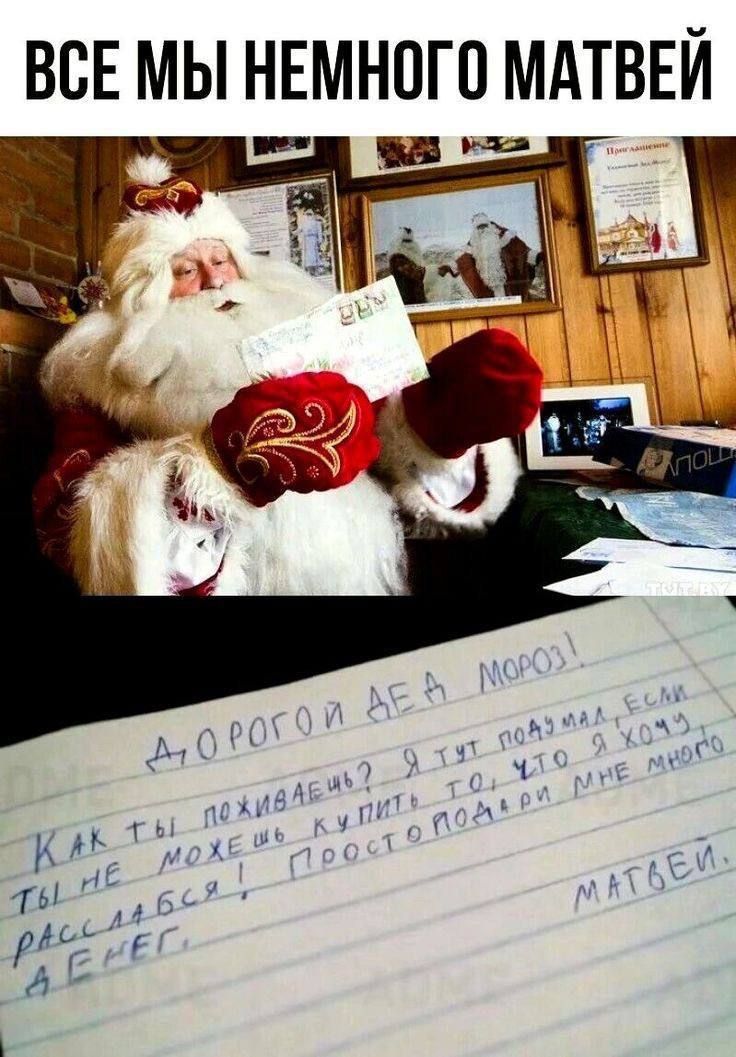 ВСЕ МЫ НЕМНОГО МАТВЕЙ
Приглашение
ПОШ
TUT.BY
ДОРОГОЙ ДЕД МОРОЗ!
КАК ТЫ ПОЖИВАЕШЬ? Я ТУТ ПОДУМАЛ, ЕСЛИ
ТЫ НЕ МОЖЕШЬ КУПИТЬ ТО, ЧТО Я ХОЧУ,
РАССЛАБСЯ! ПРОСТО ПОДАРИ МНЕ МНОГО
ДЕНЕГ.
МАТВЕЙ.